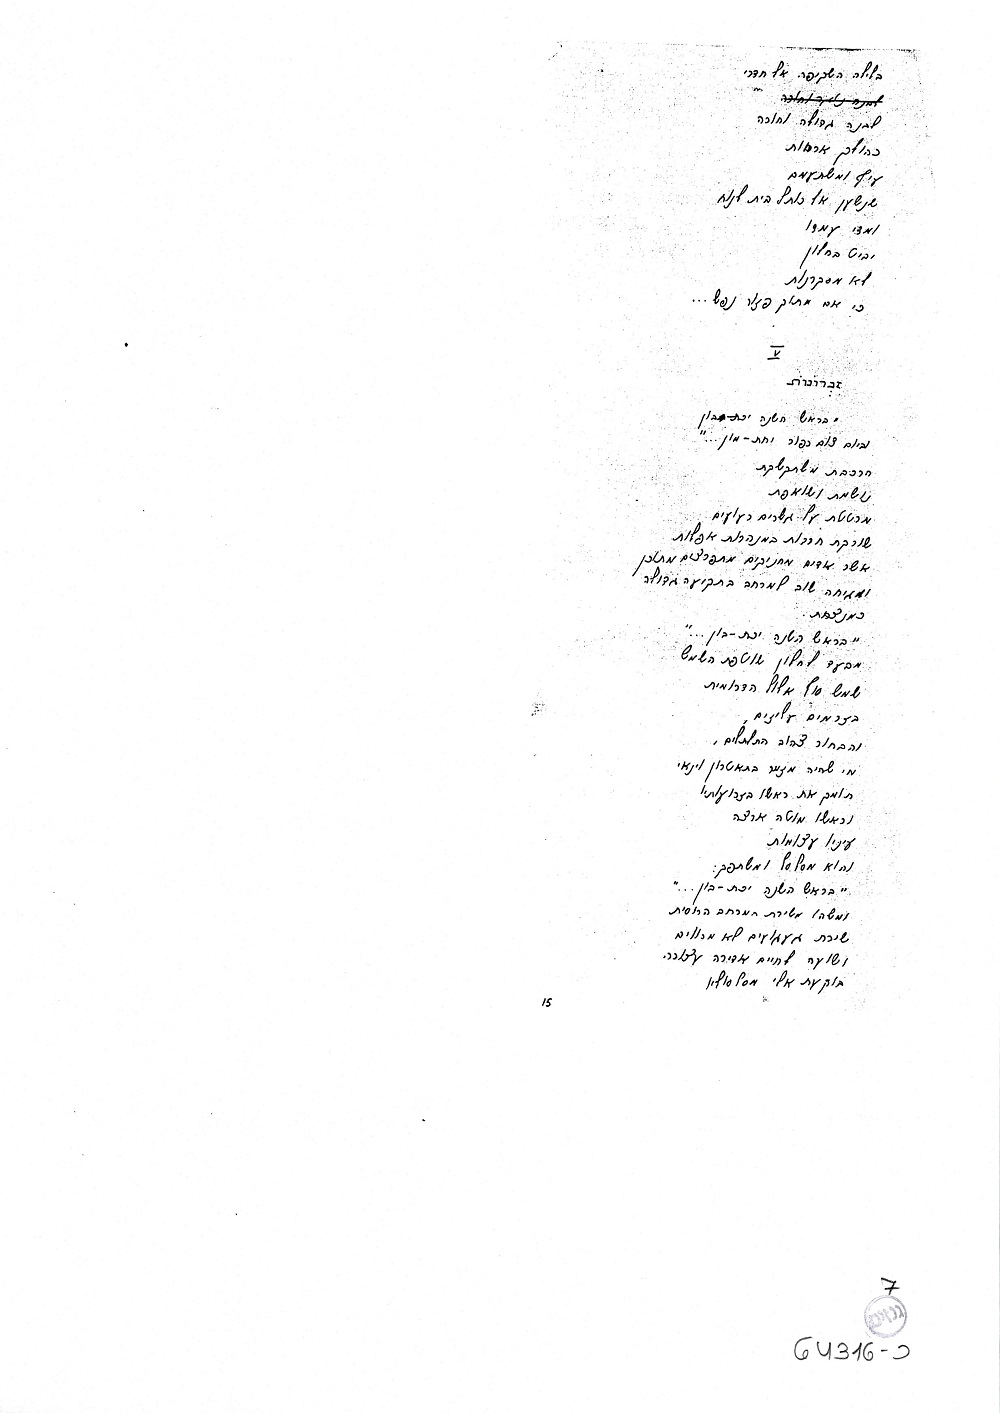 בלילה השקיפה אל חדרי
לבנה גדולה וחורה
כהולך ארחות
עיף ומשתעמם
שנשען אל כותל בית לנוח
ומדי עמדו
יביט בחלון
לא מסקרנות
כי אם מתוך פזור נפש...
V
זכרונות
"בראש השנה יכת-בון
וביום צום כפור יחת-מון..."
הרכבת משתקשקת
נושמת ושואפת
מרטטת על גשרים רעועים
שורקת חרדות במנהרות אפלות
אשר אדים מחניקים מתפרצים מתוכן
ומגיחה שוב למרחב בתקיעה גדולה
כמנצחת.
"בראש השנה יכת-בון..."
מבעד לחלון שוטפת השמש
שמש סוף אלול הדרומית
בזרמים עליזים,
והבחור צהוב התלתלים,
מי שהיה מזמר בתאטרון וינאי
תומך את ראשו בזרועותיו
וראשו מוטה ארצה
עיניו עצומות
והוא מסלסל ומשתפך:
"בראש השנה יכת-בון..."
ומשהו משירת המרחב הרוסית
שירת געגועים לא מכוונים
ושועה לחיים אדירה עצורה.
בוקעת אלי מסלסוליו
15
7
גנזים
64316-כ